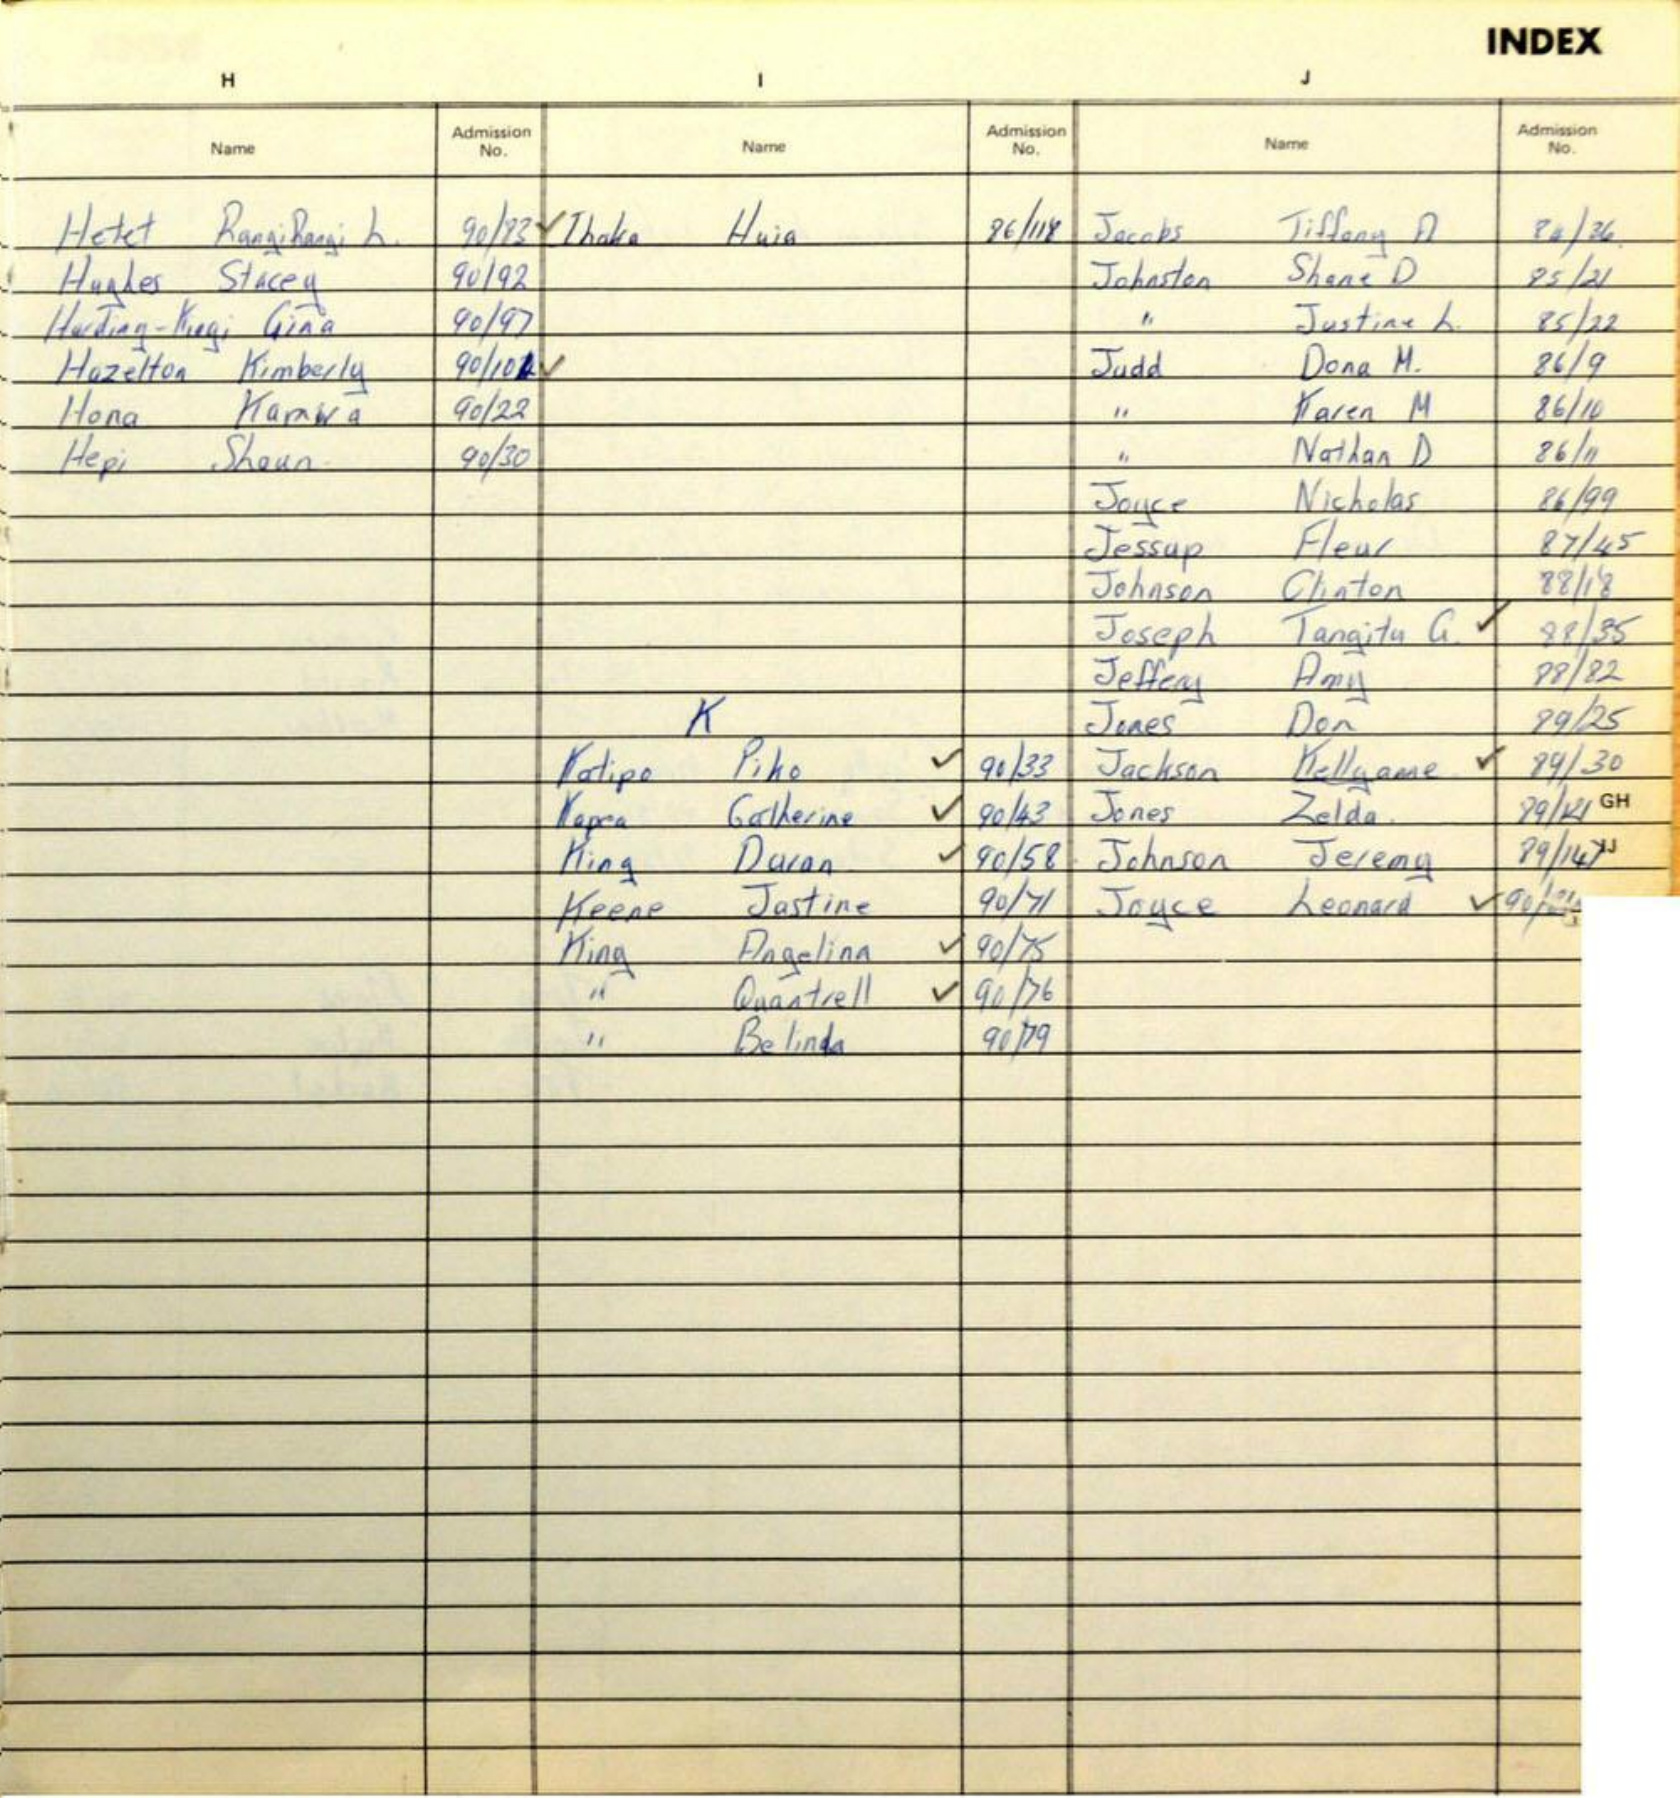 INDEX
H I J
Name Admission No. Name Admission No. Name Admission No.
Hetet RangiRangi L. 90/83 ✓ Ihaka Huia 86/118 Jacobs Tiffany A 84/36
Hughes Stacey 90/92 Johnston Shane D 85/21
Harding-Kingi Gina 90/97 " Justine L. 85/22
Hazelton Kimberly ✓ Judd Dona M. 86/9
Hona 90/22 " Karen M 86/10
Hepi Shaun 90/30 " Nathan D 86/11
Joyce Nicholas 86/99
Jessup Fleur 87/45
Johnson Clinton 88/18
Joseph Tangitu G. ✓ 88/35
Jeffery Amy 88/82
K Jones Don 89/25
Katipo Piko ✓ 90/33 Jackson Kellyanne ✓ 89/30
Kapea Catherine ✓ 90/43 Jones Zelda. GH
King Duran ✓ 90/58 Johnson Jeremy 89/147 IJ
Keene Justine 90/71 Joyce Leonard ✓
King Angelina ✓ 90/75
" Quantrell ✓ 90/76
" Belinda 90/79